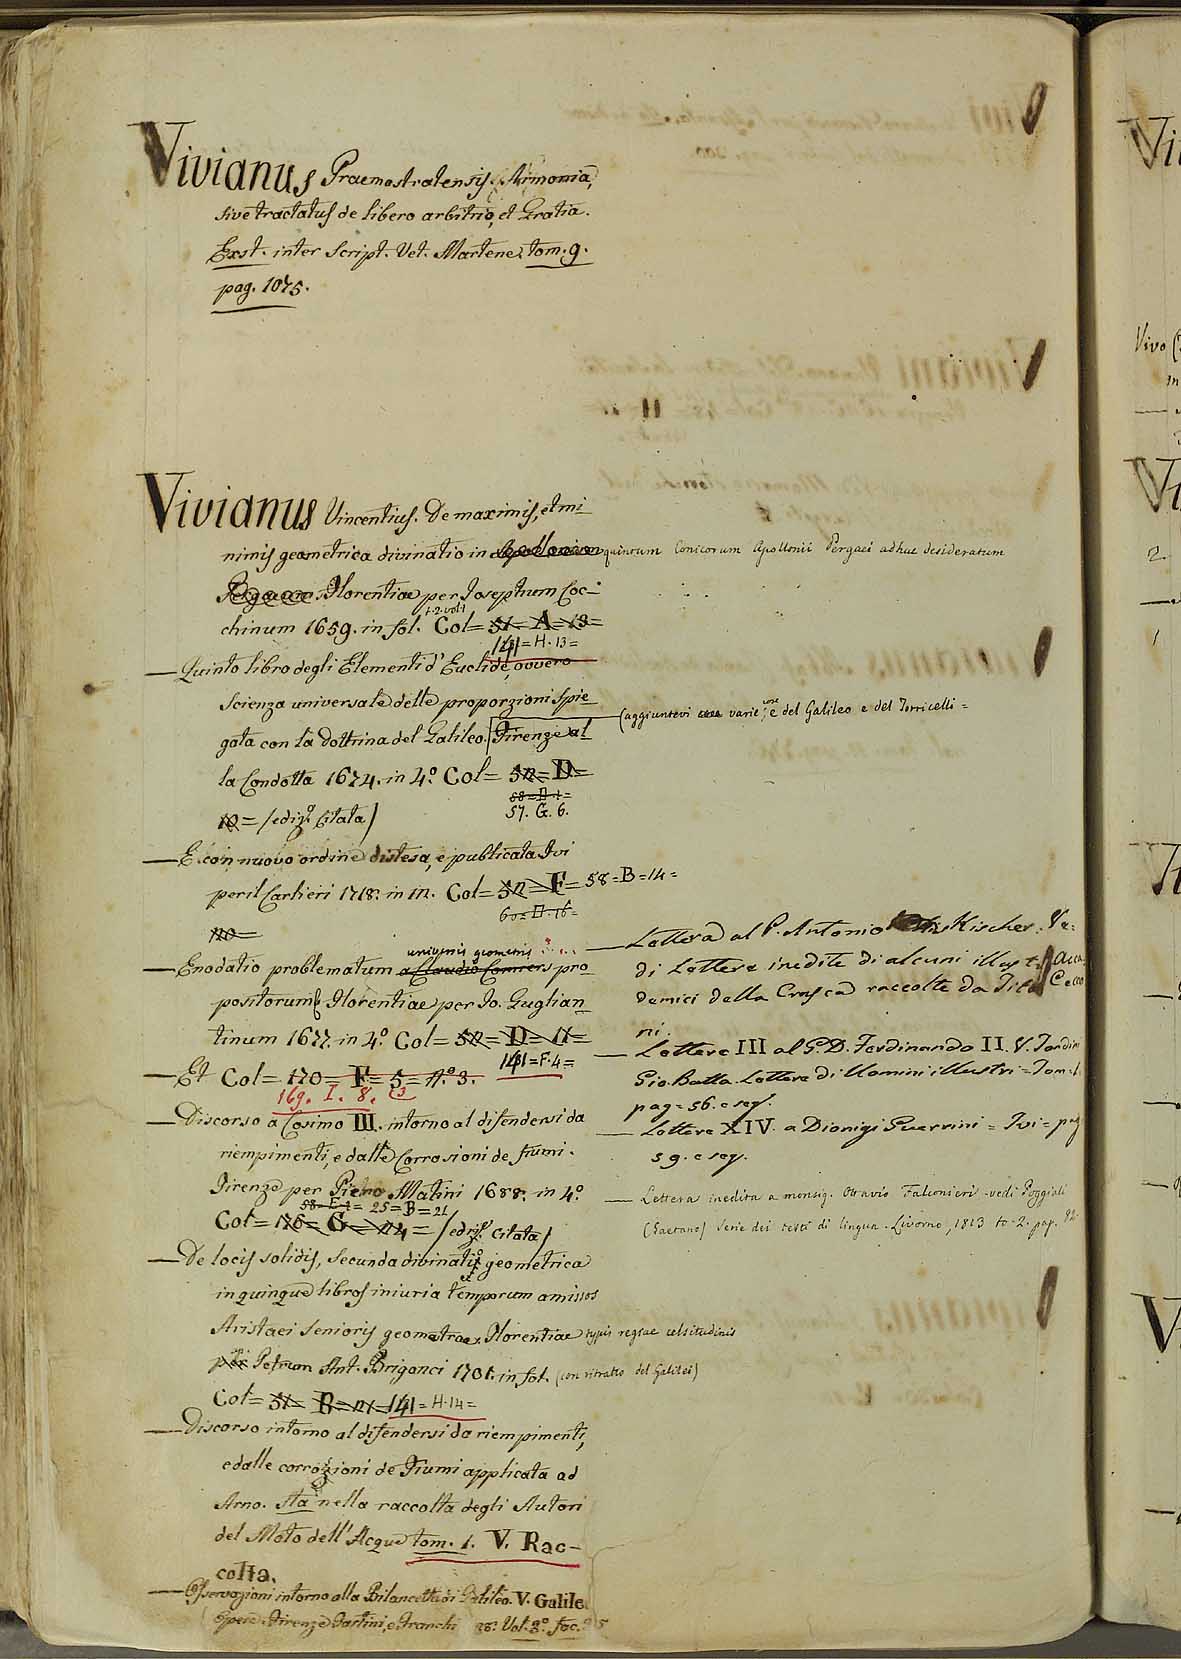 Vivianus Praemostratensis. Armonia,
sive tractatus de libero arbitrio, et Gratia.
Exst. inter Script. Vet. Martene, tom. 9.
pag. 1075.
Vivianus Vincentius. De maximis, et mi-
nimis geometrica divinatio in quintum Conicorum Apollonii Pergaei adhuc desideratum
Florentiae per Iosephum Coc-
chinum 1659. in fol. Col= 51= A=13=
141=H.13=
— Quinto libro degli Elementi d'Euclide, ovvero
Scienza universale delle proporzioni spie
gata con la dottrina del Galileo. Firenze al
(aggiuntevi varie cose, e del Galileo e del Torricelli=
la Condotta 1674. in 4º Col= 52= D=
58=D.1=
10= (ediz. Citata) 57. G. 6.
— E con nuovo ordine distesa, e publicata Ivi
per il Carlieri 1718. in 12. Col= 52= F= 58=B=14=
60=D.16=
— Enodatio problematum universis geometris a Claudio Comiers pro
positorum Florentiae per Io. Guglian
tinum 1677. in 4º Col= 52= D= 11=
141=F.4=
— Et Col= 170= F= 5= Nº 3.
169. I. 8.
— Discorso a Cosimo III. intorno al difendersi da
riempimenti, e dalle Corrosioni de fiumi.
Firenze per Pietro Matini 1688. in 4º
25=B=21
Col= 126= G= 14= (ediz. Citata)
— De locis solidis, secunda divinatio geometrica
in quinque libros iniuria temporum amissos
Aristaei Senioris geometrae. Florentiae typis regiae celsitudinis
Petrum Ant. Brigonci 1701. in fol. (con ritratto del Galilei)
Col= 51= B=12= 141=H.14=
— Discorso intorno al difendersi da riempimenti,
e dalle corrozioni de Fiumi applicata ad
Arno. sta nella raccolta degli Autori
del Moto dell'Acque tom. 1. V. Rac-
colta.
— Osservazioni intorno alla Bilancetta di Galileo. V. Galile
Opere. Firenze Tartini, e Franchi Vol. 3º fac.
— Lettera al P. Antonio Kircher. Ve-
di Lettere inedite di alcuni illustri Acca
demici della Crusca raccolte da Pila Cecco
ni.
— Lettere III al G. D. Ferdinando II. V. Fondini
Gio. Batta. Lettere di Uomini illustri = Tom.
pag= 56. e seg.
— Lettere XIV. a Dionigi Guerrini = Ivi = pag
59. e seg.
— Lettera inedita a monsig. Otravio Falconieri - vedi Poggiali
(Gaetano) Serie dei testi di lingua. Livorno, 1813 to. 2. pag. 82.